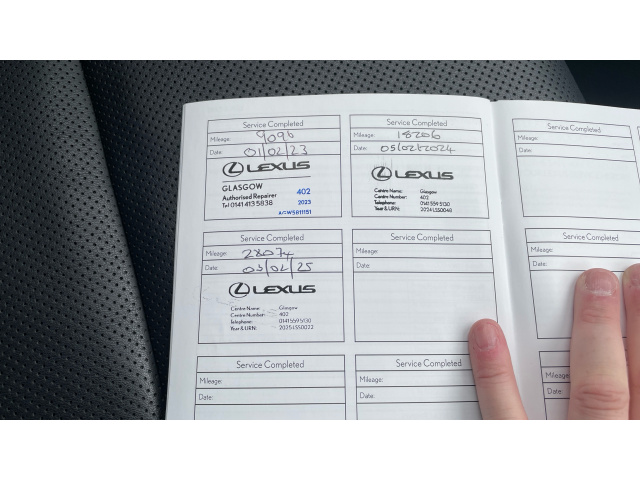 Service Completed
Mileage: 9096
Date: 01/02/23
LEXUS
GLASGOW
Authorised Repairer 402
Tel 0141 413 5838 2023
Service Completed
Mileage: 18206
Date: 05/02/2024
LEXUS
Centre Name: Glasgow
Centre Number: 402
Telephone: 0141 559 5130
Year & URN:
Service Completed
Mileage:
Date:
Service Completed
Mileage: 28074
Date: 03/02/25
LEXUS
Centre Name: Glasgow
Centre Number: 402
Telephone: 0141 559 5130
Year & URN:
Service Completed
Mileage:
Date:
Service Completed
Date:
Service Completed
Mileage:
Date:
Service Completed
Mileage:
Date: